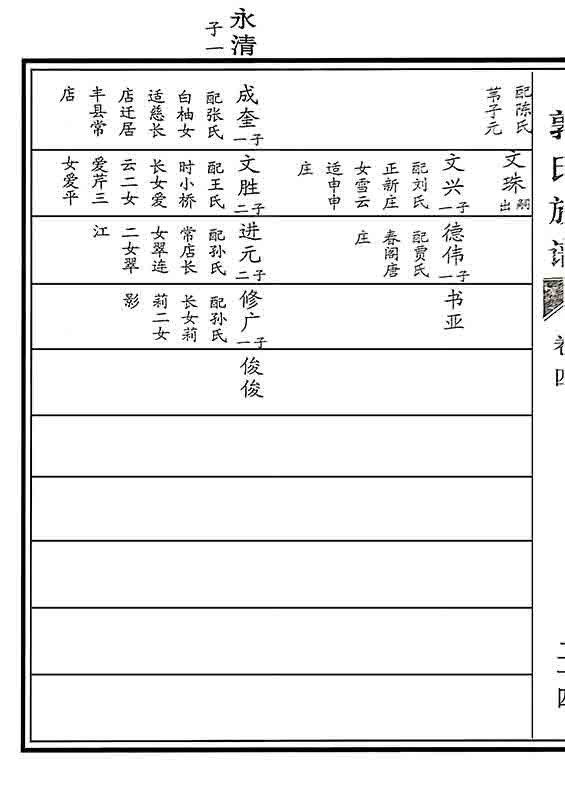 郭氏族谱
卷四
永清
子一
配陈氏
苇子元
成奎
一子
配张氏
白柚女
适慈长
店迁居
丰县常
店
文珠
出嗣
文兴
一子
配刘氏
正新庄
女雪云
适申申
庄
文胜
二子
配王氏
时小桥
长女爱
云二女
爱芹三
女爱平
德伟
一子
配贾氏
春阁唐
庄
进元
二子
配孙氏
常店长
女翠连
二女翠
江
书亚
修广
一子
配孙氏
长女莉
莉二女
影
俊俊